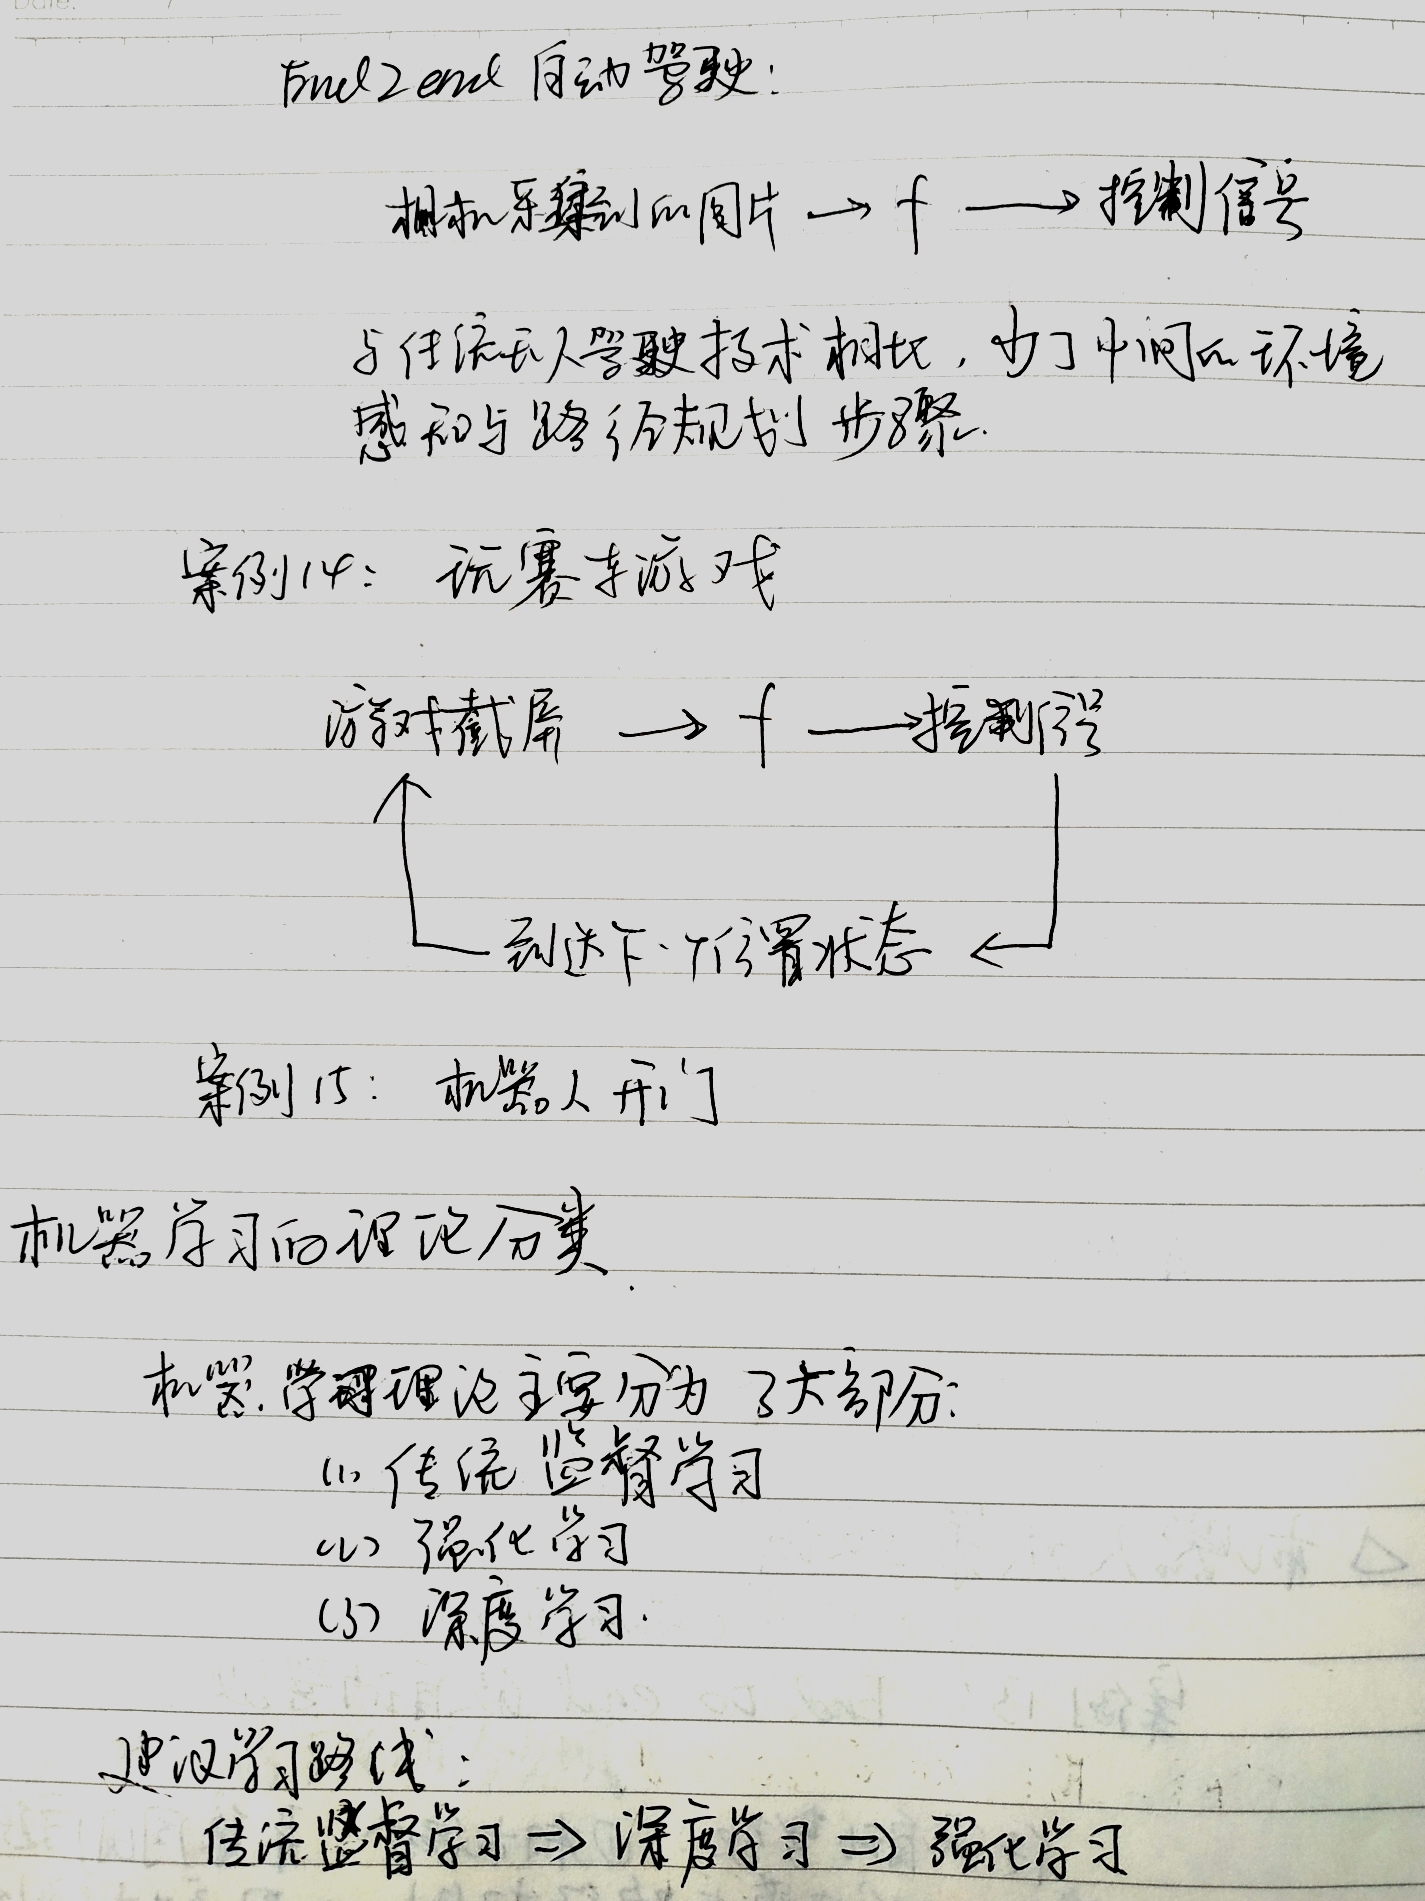 Date:
End2end 自动驾驶:
相机采集到的图片 → f → 控制信号
与传统无人驾驶技术相比, 少了中间的环境
感知与路径规划步骤.
案例14: 玩赛车游戏
游戏截屏 → f → 控制信号
到达下一个位置状态
案例15: 机器人开门
机器学习的理论分类.
机器学习理论主要分为3大部分:
(1) 传统监督学习
(2) 强化学习
(3) 深度学习.
建议学习路线:
传统监督学习 ⇒ 深度学习 ⇒ 强化学习